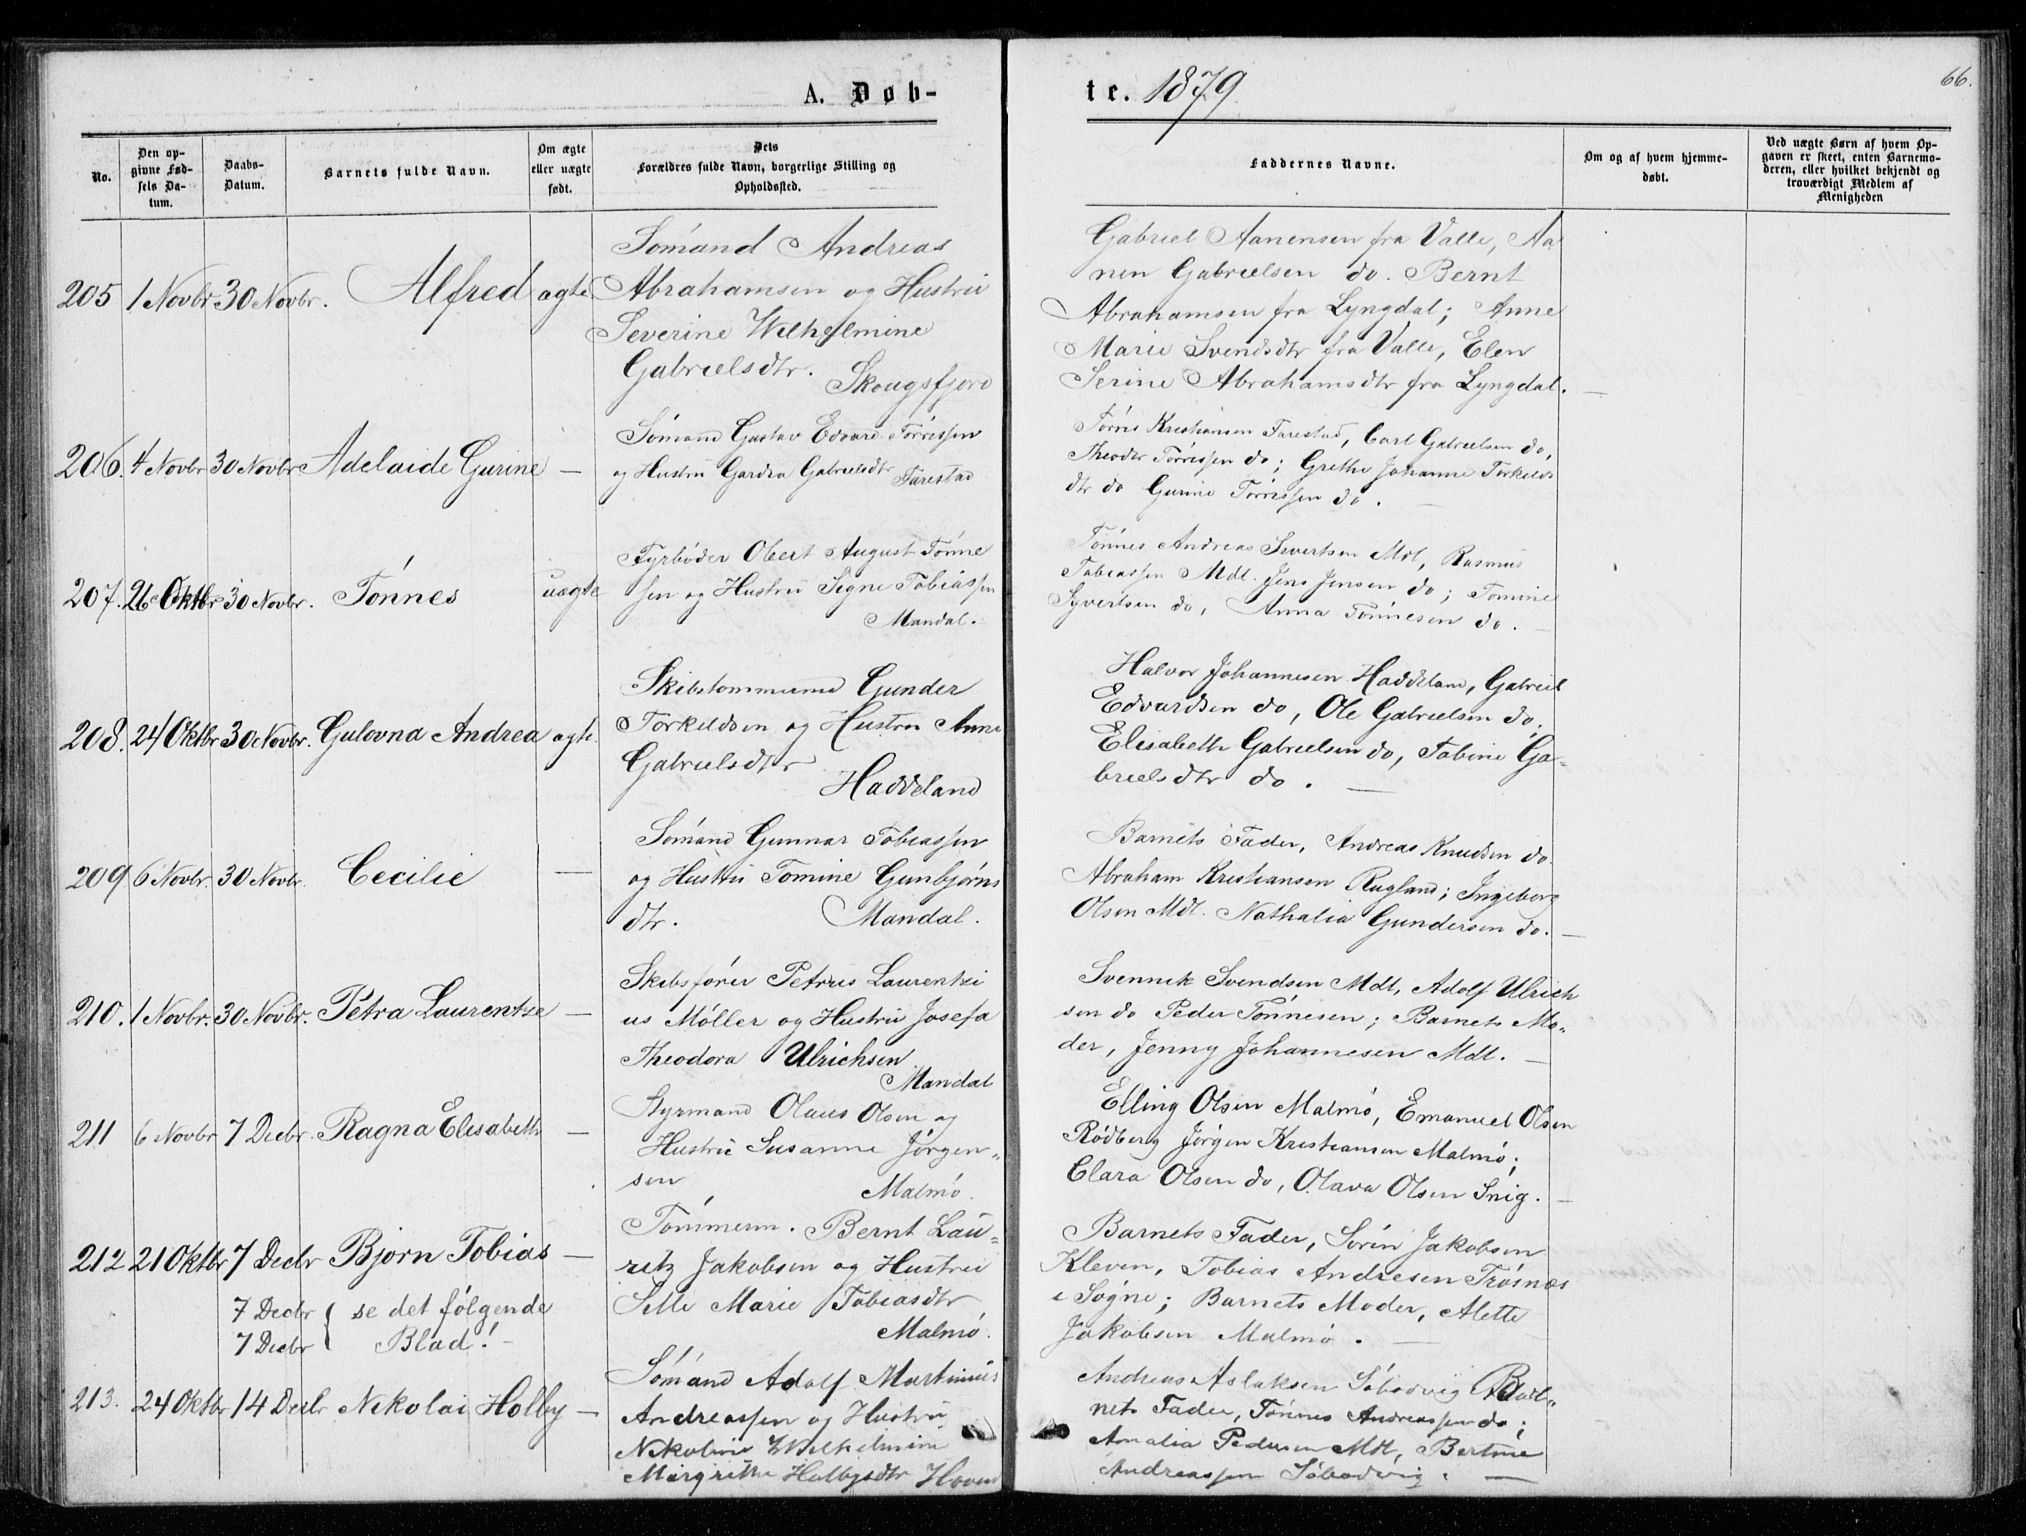 A. Døb-
te. 1879
66.
No.
Den op-
givne Fød-
sels Da-
tum.
Daabs-
Datum.
Barnets fulde Navn.
Om ægte
eller uægte
født.
Dets
Forældres fulde Navn, borgerlige Stilling og
Opholdssted.
Faddernes Navne.
Om og af hvem hjemme-
døbt.
Ved uægte Børn af hvem Op-
gaven er skeet, enten Barnemo-
deren, eller hvilket bekjendt og
troværdigt Medlem af
Menigheden
205 1 Novbr 30 Novbr. Alfred ægte
Sømand Andreas
Abrahamsen og Hustru
Severine Wilhelmine
Gabrielsdtr.
Skougsfjord
Gabriel Aanensen fra Valle, Aa
nen Gabrielsen do. Bernt
Abrahamsen fra Lyngdal; Anne
Marie Svendsdtr fra Valle, Elen
Serine Abrahamsdtr fra Lyngdal. —
206. 4 Novbr 30 Novbr Adelaide Gurine —
Sømand Gustav Edvard Tørrissen
og Hustru Gabrielsdtr Farestad
Tørris Kristiansen Farestad, Carl Gabrielsen do,
Theodor Tørrissen do; Grethe Johanne Torkelds
dtr do Gurine Tørrissen do. —
207. 26 Oktbr 30 Novbr. Tønnes uægte
Fyrbøder Obert August Tønne
sen og Hustru Signe Tobiassen
Mandal.
Tønnes Andreas Sivertsen Mdl, Rasmus
Tobiassen Mdl. Jens Jensen do; Tomine
Syvertsen do, Anna Tønnesen do. —
208. 24 Oktbr 30 Novbr. Gulovna Andrea ægte
Skibstømmermd Gunder
Torkeldsen og Hustru Anne
Gabrielsdtr
Haddeland
Halvor Johannesen Haddeland, Gabriel
Edvardsen do, Ole Gabrielsen do,
Elisabeth Gabrielsen do, Tobine Ga-
brielsdtr do. —
209 6 Novbr. 30 Novbr. Cecilie —
Sømand Gunnar Tobiassen
og Hustru Tomine Gunbjørns
dtr. Mandal.
Barnets Fader, Andreas Knudsen do.
Abraham Kristiansen Rugland; Ingeborg
Olsen Mdl. Nathalia Gundersen do. —
210. 1 Novbr. 30 Novbr. Petra Laurentze —
Skibsfører Petrus Laurentzi
us Møller og Hustru Josefa
Theodora Ulrichsen
Mandal
Svennik Svendsen Mdl, Adolf Ulrich
sen do Peder Tønnesen; Barnets Mo-
der, Jenny Johannesen Mdl. —
211 6 Novbr 7 Decbr. Ragna Elisabeth —
Styrmand Olaus Olsen og
Hustru Susanne Jørgen-
sen Malmø.
Elling Olsen Malmø, Emanuel Olsen
Rødberg Jørgen Kristiansen Malmø;
Clara Olsen do, Olava Olsen Snig. —
212 21 Oktbr 7 Decbr Bjørn Tobias —
7 Decbr { se det følgende
7 Decbr { Blad! —
Tømmerm. Bernt Lau-
ritz Jakobsen og Hustru
Marie Tobiasdtr
Malmø.
Barnets Fader, Sørin Jakobsen
Kleven, Tobias Andresen Trøsnæs
i Søgne; Barnets Moder, Alette
Jakobsen Malmø. —
213. 24 Oktbr 14 Decbr Nikolai Holby —
Sømand Adolf Martinius
Andreassen og Hustru
Nikoline Wilhelmine
Margrethe Holbysdtr Hoven
Andreas Aslaksen Søbodvig Bar-
nets Fader, Tønnes Andreassen do;
Amalia Pedersen Mdl, Bertine
Andreassen Søbodvig. —